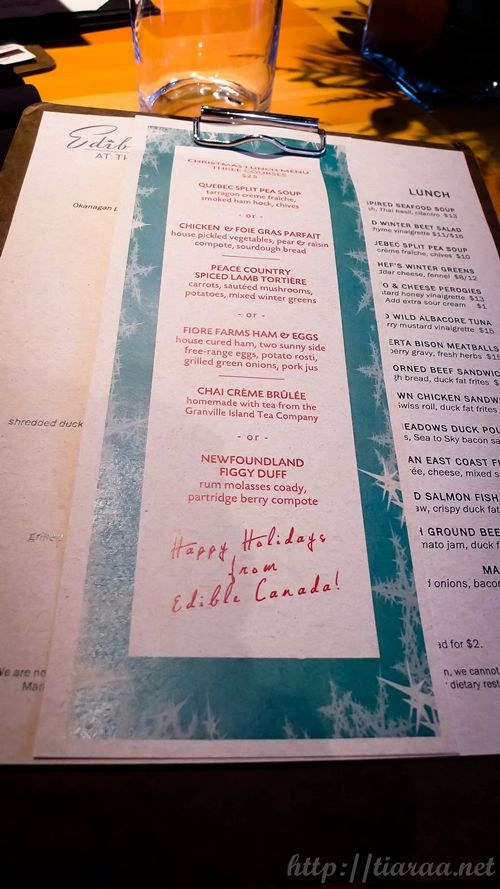 Edib
AT TH
Okanagan
shredded duck
We are no
CHRISTMAS LUNCH MENU
THREE COURSES
$25
QUEBEC SPLIT PEA SOUP
tarragon crème fraîche,
smoked ham hock, chives
- or -
CHICKEN & FOIE GRAS PARFAIT
house pickled vegetables, pear & raisin
compote, sourdough bread
PEACE COUNTRY
SPICED LAMB TORTIÈRE
carrots, sautéed mushrooms,
potatoes, mixed winter greens
- or -
FIORE FARMS HAM & EGGS
house cured ham, two sunny side
free-range eggs, potato rosti,
grilled green onions, pork jus
CHAI CRÈME BRÛLÉE
homemade with tea from the
Granville Island Tea Company
- or -
NEWFOUNDLAND
FIGGY DUFF
rum molasses coady,
partridge berry compote
Happy Holidays
from
Edible Canada!
LUNCH
PIRED SEAFOOD SOUP
sh, Thai basil, cilantro $13
D WINTER BEET SALAD
hyme vinaigrette $11/$16
JEBEC SPLIT PEA SOUP
crème fraîche, chives $10
HEF'S WINTER GREENS
ddar cheese, fennel $8/12
O & CHEESE PEROGIES
stard honey vinaigrette $13
Add extra sour cream $1
D WILD ALBACORE TUNA
ry mustard vinaigrette $15
ERTA BISON MEATBALLS
berry gravy, fresh herbs $15
ORNED BEEF SANDWIC
gh bread, duck fat frites $
WN CHICKEN SANDW
swiss roll, duck fat frites
EADOWS DUCK POU
s, Sea to Sky bacon sa
AN EAST COAST F
rée, cheese, mixed s
D SALMON FISH
aw, crispy duck fat
H GROUND BEE
mato jam, duck f
MA
d onions, bacon
ad for $2.
n, we cannot
dietary rest
http://tiaraa.net